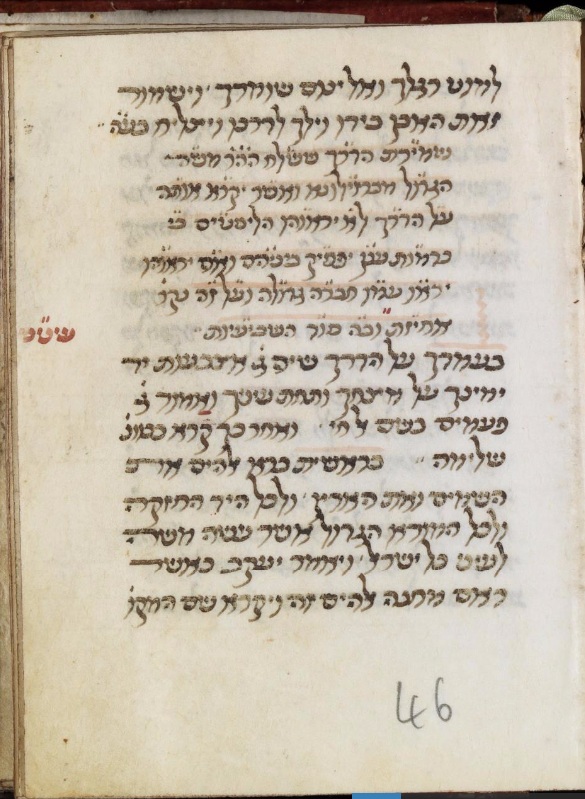 למוט רגלך ואל ינום שומרך וישמור
זאת האבן בידו וילך לדרכו ויצליח בע״ה
שמירת הדרך ששלח ה״ה״ר משה
הגדול מברצילונא ואשר יקרא אותה
על הדרך לא יראוהו הליסטים כי
כדמות ענן יפסיק בינהם ואם יראוהו
יראו עמו חברה גדולה ועל זה נקו
אחיזת וכה סוד השביעית
בעמדך על הדרך שים ג׳ אצבעות יד
ימינך על מצחך ותחת שנך ואמור ג׳
פעמים בשם אל חי ואחר כך קרא פסוק
שלימה בראשית ברא אלהים את
השמים ואת הארץ ולכל היד החזקה
ולכל המורא הגדול אשר עשה משה
לעיני כל ישראל ויאמר יעקב כאשר
ראם מחנה אלהים זה ויקרא שם המקו
46